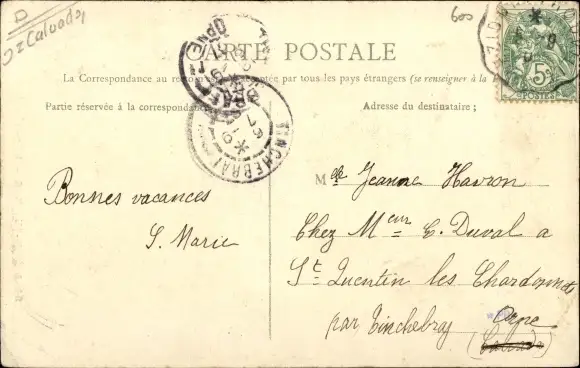 D
Jz Calvados
600
CARTE POSTALE
La Correspondance au recto n'est pas acceptée par tous les pays étrangers (se renseigner à la
Partie réservée à la correspondance
Adresse du destinataire ;
ORNE
TINCHEBRAI
5c
POSTES
Bonnes vacances
S. Marie
Melle Jeanne Havron
Chez Meur C. Duval a
St Quentin les Chardonnets
par Tinchebray Orne
(Calvados)